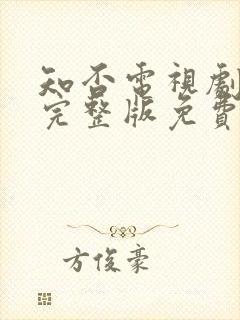 知否電視劇
完整版免費
方俊豪